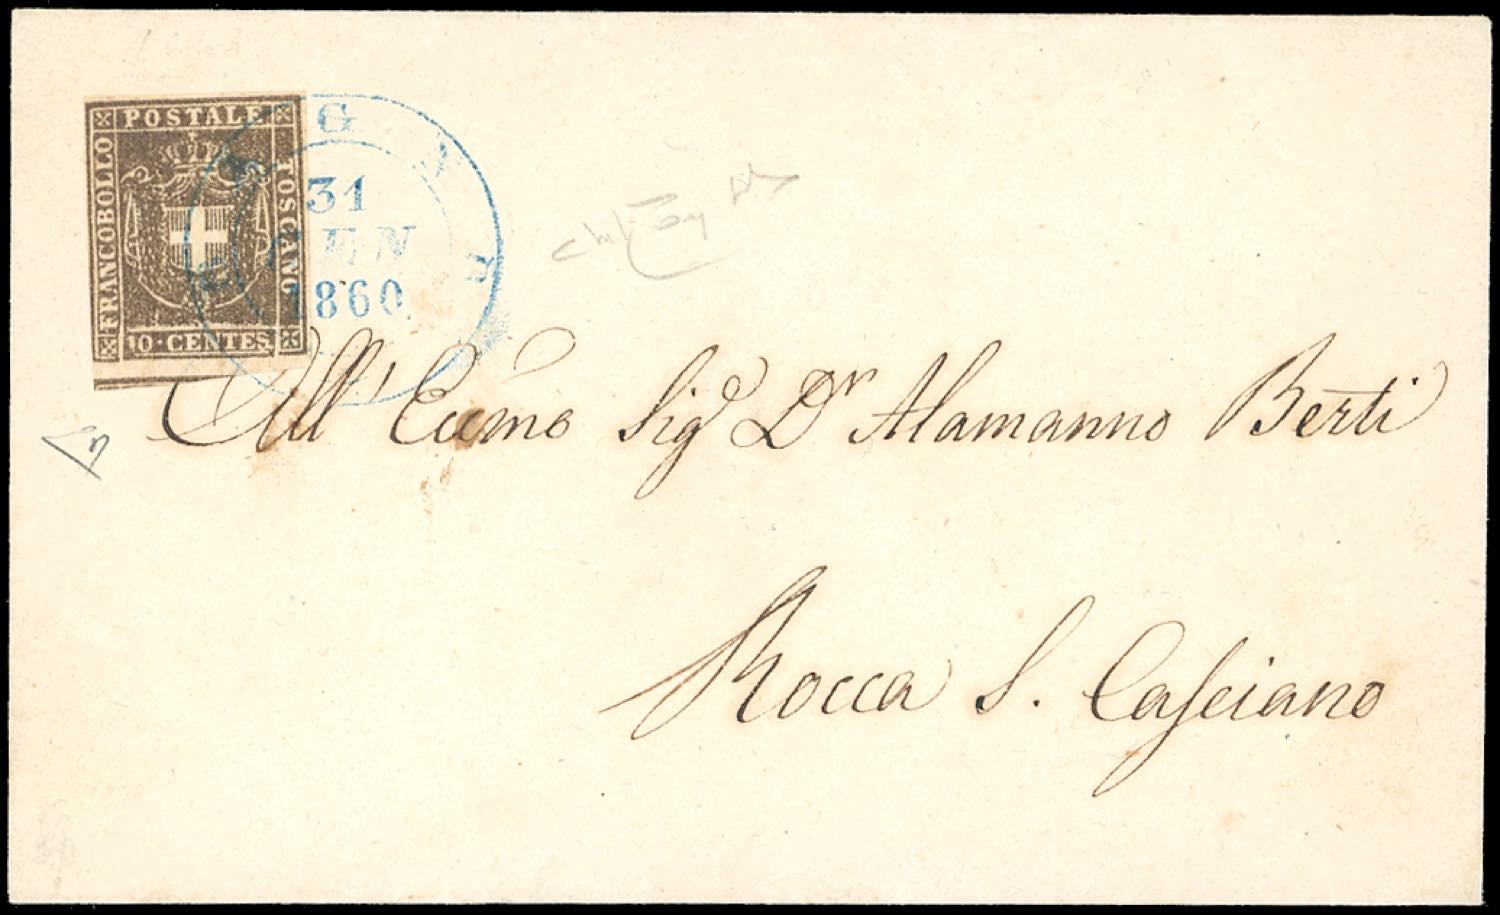 POSTALE
FRANCOBOLLO
TOSCANO
10 · CENTES.
31
GEN
1860
All' Eccmo Sigr Dr Alamanno Berti
Rocca S. Casciano